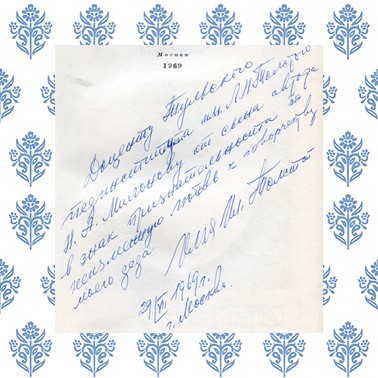 Москва
1969
Доценту Тульского
пединститута им. Л.Н. Толстого
Н. А. Милонову от сына автора
в знак признательности за
неизменную любовь к творчеству
моего деда
Илья Ил. Толстой
29/VI 1969 г.
г. Москва.